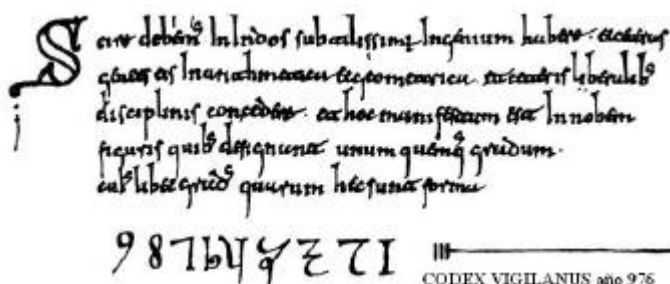 Scire debem' In Indos subtilissimum Ingenium habere et ceteras
gentes eis In arithmetica et geometrica et ceteris liberalib'
disciplinis concedere. et hoc manifestum est In nobem
figuris quib' designant unum quemq' gradum.
cui'libet grad' quarum hec sunt forma
9 8 7 6 5 4 3 2 1
CODEX VIGILANUS año 976